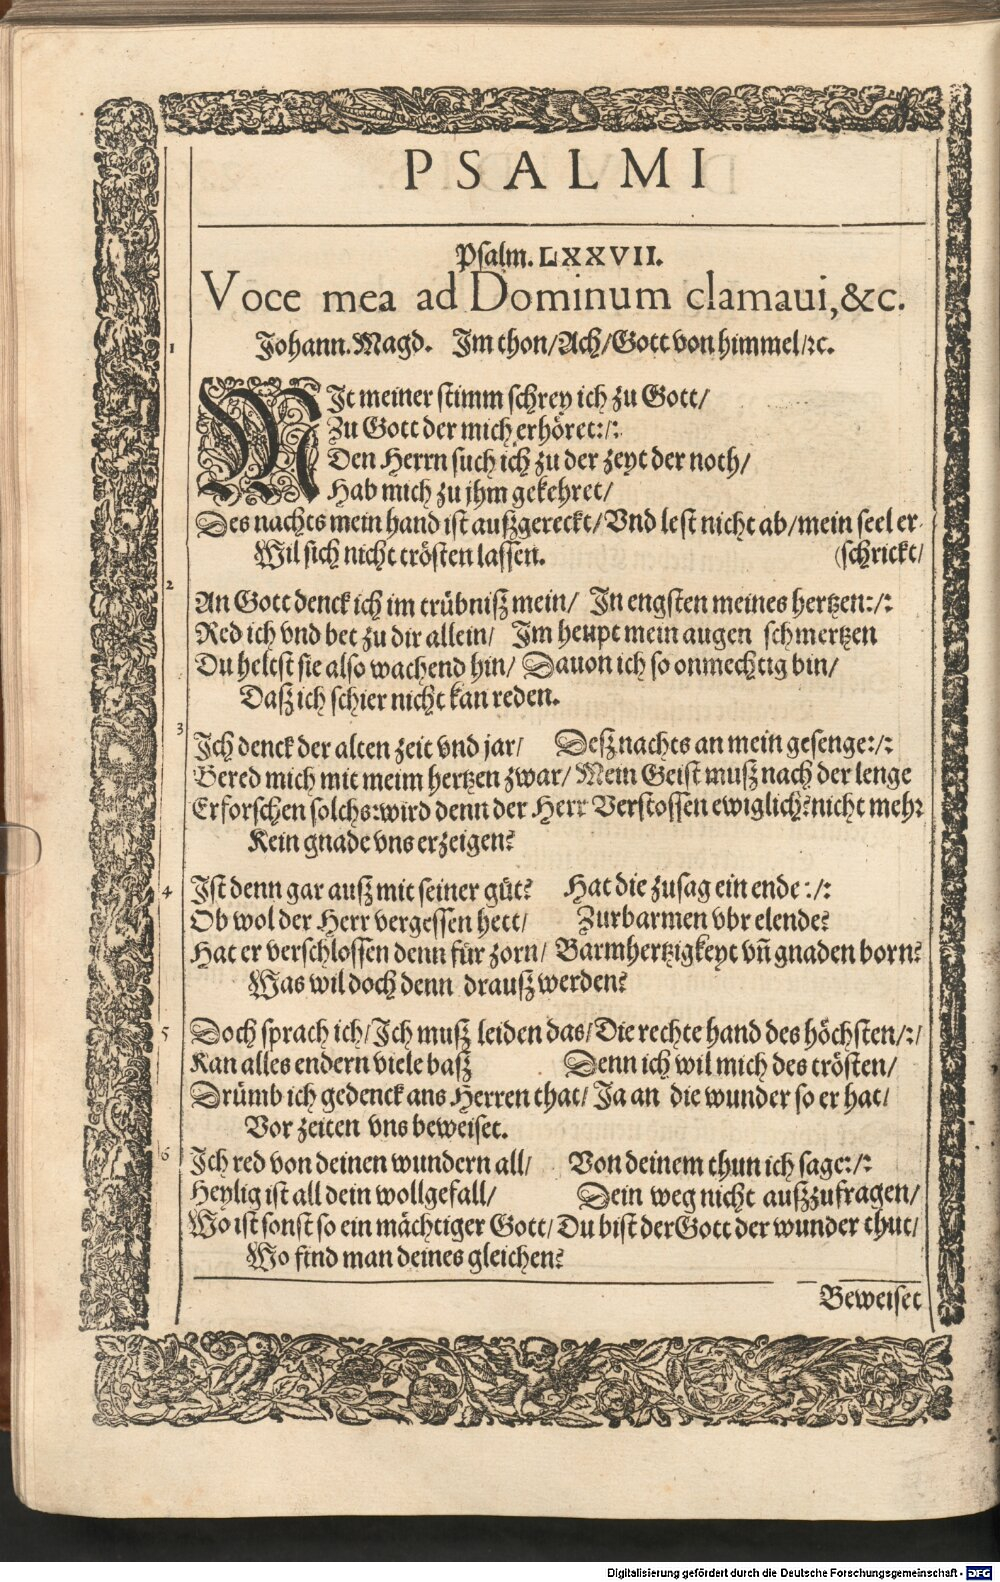 PSALMI
Psalm. LXXVII.
Voce mea ad Dominum clamaui, &c.
1 Johann. Magd. Im thon/Ach/Gott von himmel/ꝛc.
MIt meiner stimm schrey ich zu Gott/
Zu Gott der mich erhöret:/:
Den Herrn such ich zu der zeyt der noth/
Hab mich zu jhm gekehret/
Des nachts mein hand ist außgereckt/ Vnd lest nicht ab/ mein seel er-
Wil sich nicht trösten lassen. (schrickt/
2
An Gott denck ich im trübniß mein/ In engsten meines hertzen:/:
Red ich vnd bet zu dir allein/ Im heupt mein augen schmertzen
Du heltst sie also wachend hin/ Dauon ich so onmechtig bin/
Daß ich schier nicht kan reden.
3
Ich denck der alten zeit vnd jar/ Deß nachts an mein gesenge:/:
Bered mich mit meim hertzen zwar/ Mein Geist muß nach der lenge
Erforschen solchs: wird denn der Herr Verstossen ewiglich? nicht mehr
Kein gnade vns erzeigen?
4 Ist denn gar auß mit seiner güt? Hat die zusag ein ende:/:
Ob wol der Herr vergessen hett/ Zurbarmen vbr elende?
Hat er verschlossen denn für zorn/ Barmhertzigkeyt vn̄ gnaden born?
Was wil doch denn drauß werden?
5 Doch sprach ich/ Ich muß leiden das/ Die rechte hand des höchsten/:/
Kan alles endern viele baß Denn ich wil mich des trösten/
Drümb ich gedenck ans Herren that/ Ja an die wunder so er hat/
Vor zeiten vns beweiset.
6 Ich red von deinen wundern all/ Von deinem thun ich sage:/:
Heylig ist all dein wollgefall/ Dein weg nicht außzufragen/
Wo ist sonst so ein mächtiger Gott/ Du bist der Gott der wunder thut/
Wo find man deines gleichen?
Beweiset
Digitalisierung gefördert durch die Deutsche Forschungsgemeinschaft - DFG